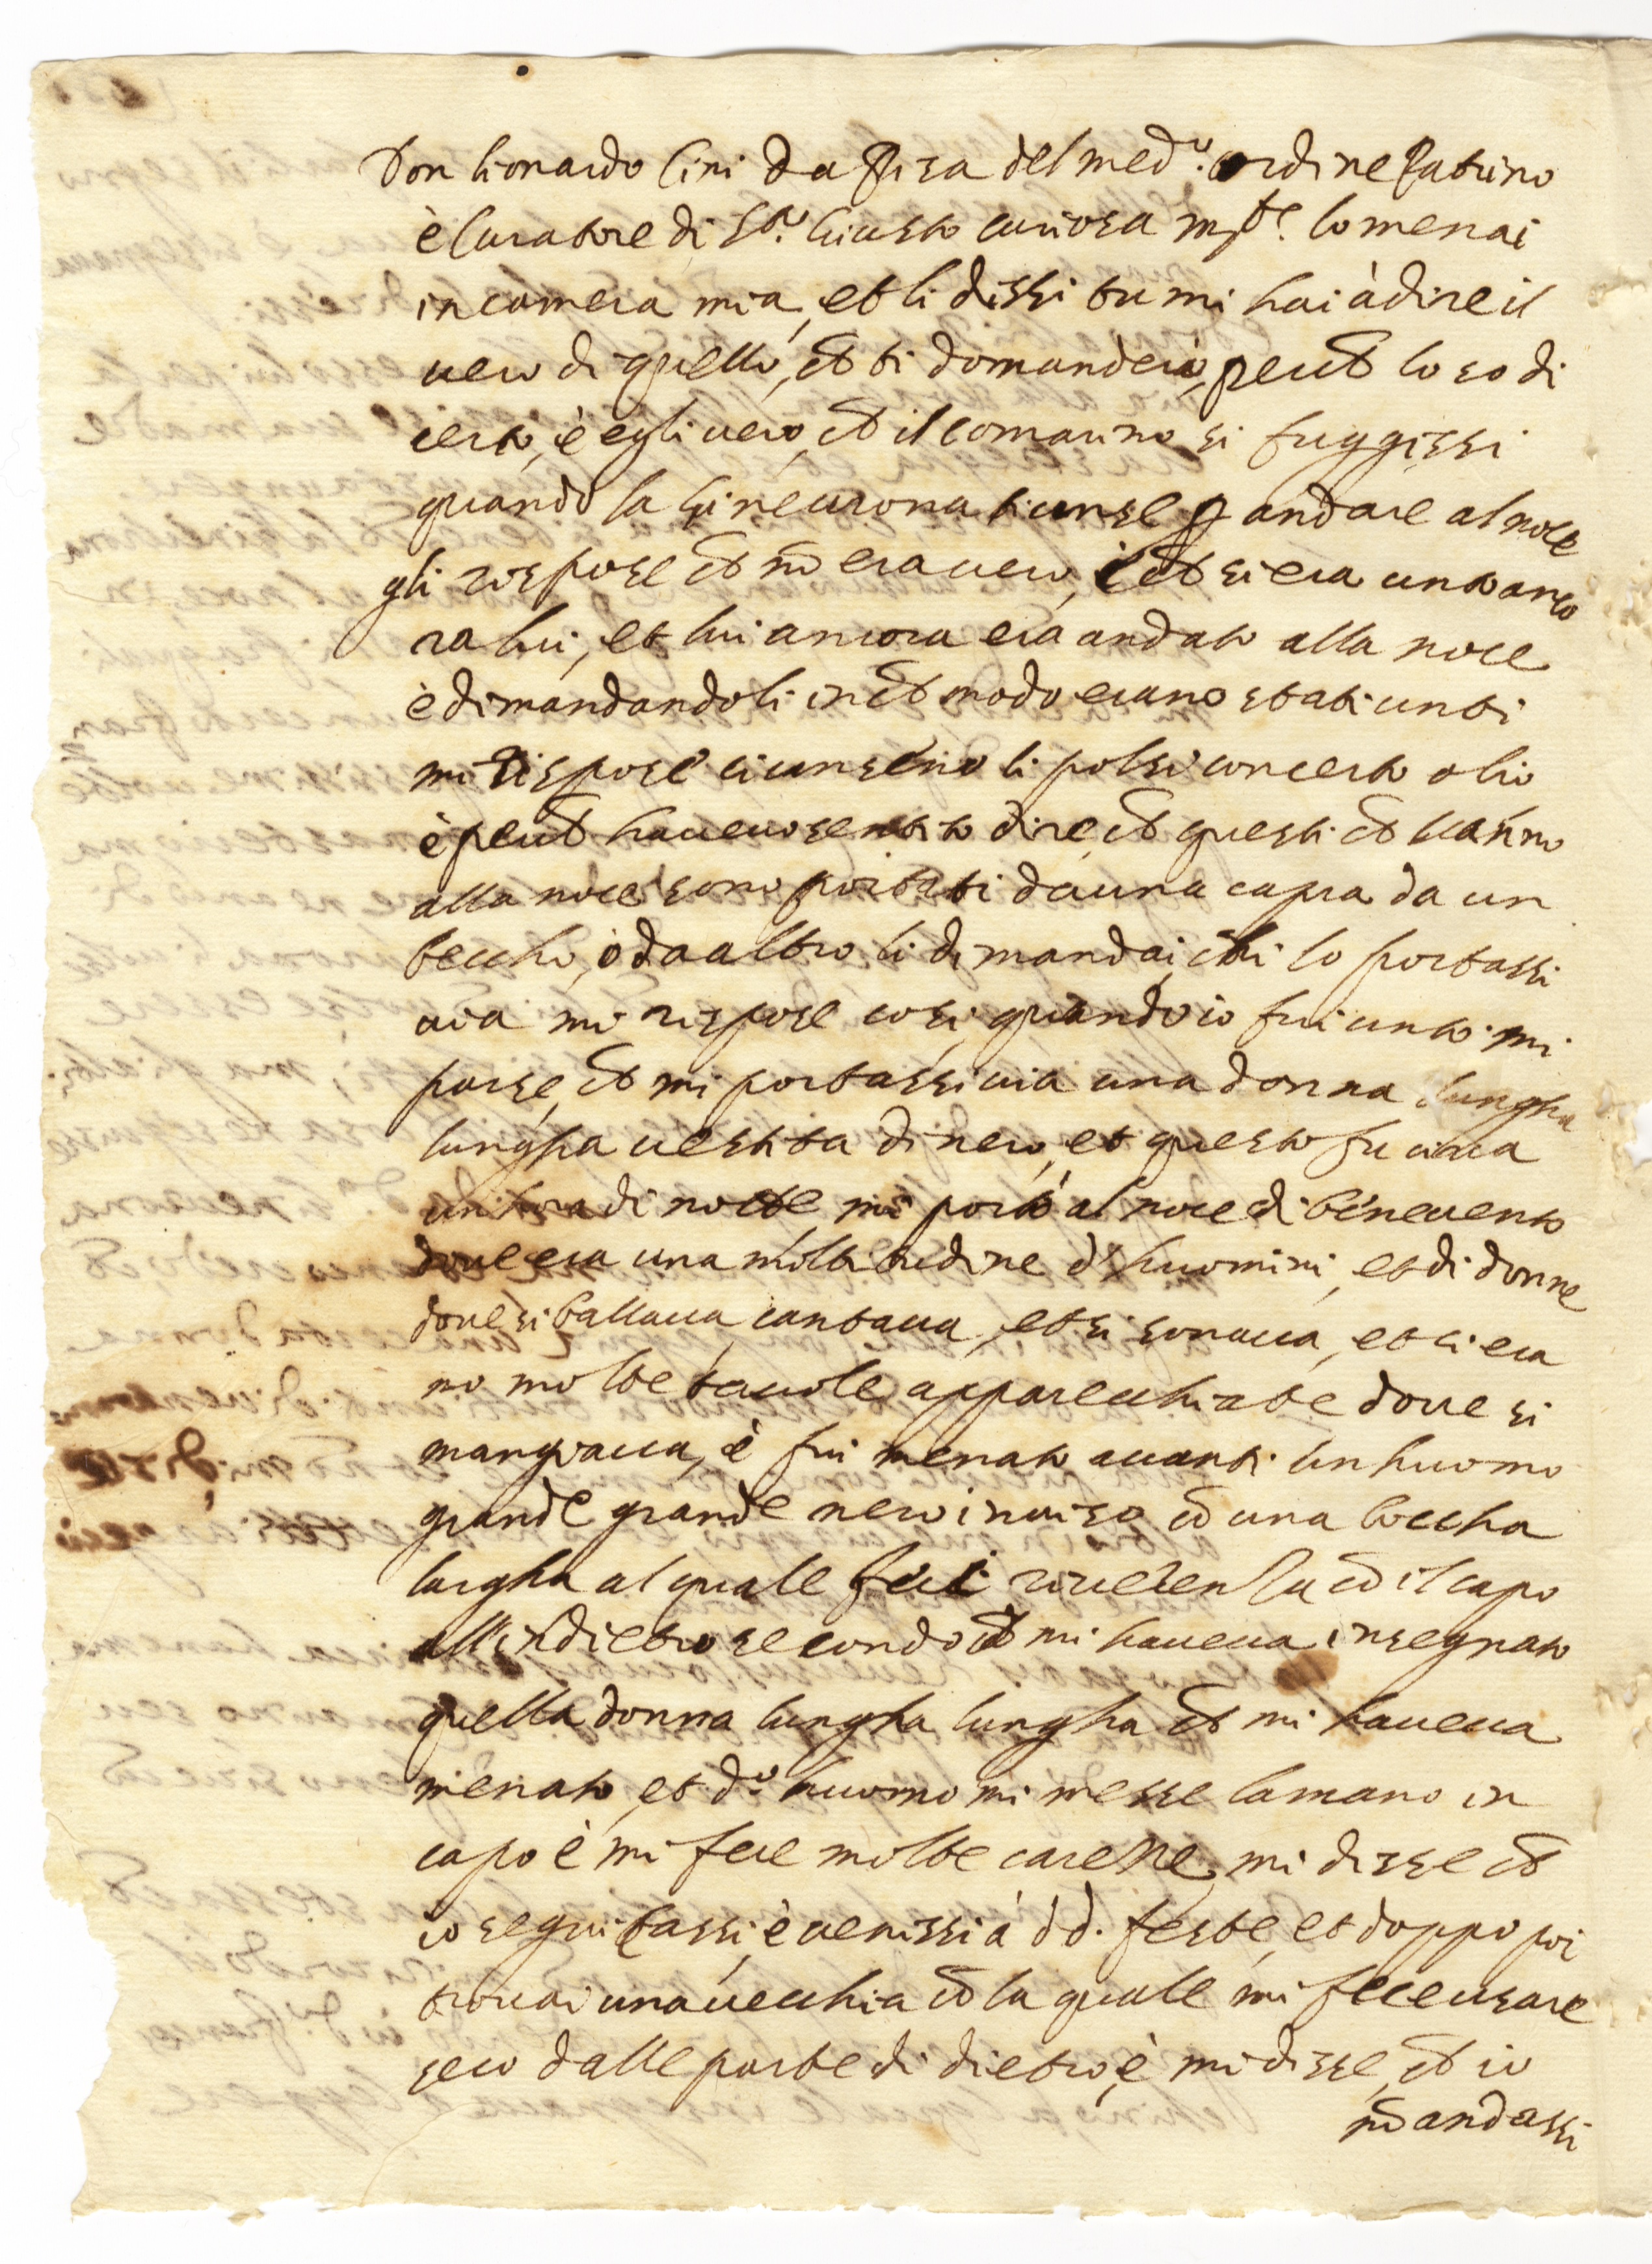 Don Lionardo Cini da Pisa del med.º ordine Patrino
è Curatore di S.ta Giusto curiosa m.te lo menai
in camera mia, et li dissi tu mi hai à dire il
uero di quello, ch ti domanderò, perch lo so di
certo, è egli uero, ch il comarino si fuggissi
quando la Gineurona ti unse p andare al noce
gli rispose ch nō era uero, è ch si era unto anco
ra lui, et lui ancora era andato alla noce
è dimandandoli in ch modo erano stati unti
mi rispose ci unseno li polsi con certo olio
è perch haueuo sentito dire, ch questi ch uanno
alla noce sono portati da una capra da un
beccho, ò da altro li dimandai, chi lo portassi
uia mi rispose cosi, quando io fui unto mi
parse, ch mi portassi uia una donna lungha
lungha uestita di nero, et questo fu circa
un hora di notte mi portò al noce di beneuento
doue era una moltitudine d'huomini, et di donne
doue si ballaua, cantaua, et si sonaua, et ci era
no molte tauole apparecchiate doue si
mangiaua, è fui menato auanti un huomo
grande grande nero in uiso cō una boccha
largha al quale feci riuerenza cō il capo
all'indietro secondo ch mi haueua insegnato
quella donna lungha lungha ch mi haueua
menato, et d.º huomo mi messe la mano in
capo è mi fece molte carezze, mi disse ch
io seguitassi, è uenissi à d.d. feste, et doppo poi
trouai una uecchia cō la quale mi fece usare
seco dalle parte di dietro, è mi disse, ch io
nō andassi